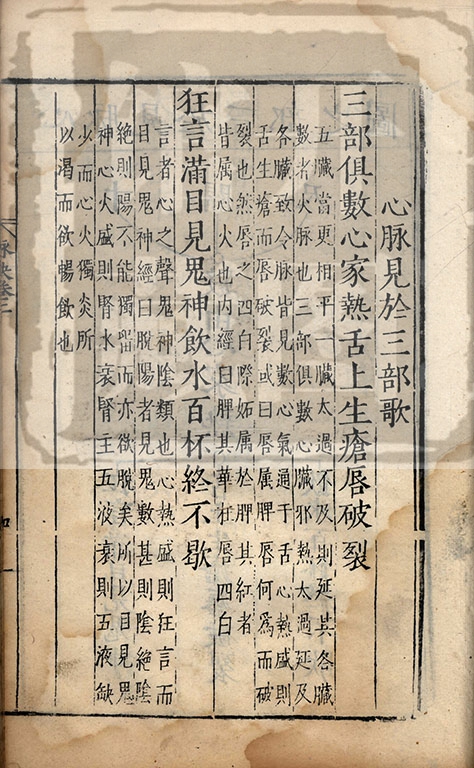 心脉見於三部歌
三部俱數心家熱舌上生瘡唇破裂
五臟當更相平一臟太過不及則延其各臟
數者火脉也三部俱數心臟邪熱太過延及
各臟致令脉皆見數心氣通于舌心熱盛則
舌生瘡而唇破裂或曰唇属脾唇何為而破
裂也然唇之四白際姤属於脾其紅者
皆属心火也内經曰脾其華在唇四白
狂言滿目見鬼神飲水百杯終不歇
言者心之聲鬼神陰類也心熱盛則狂言而
目見鬼神經曰脱陽者見鬼數甚則陰絶陰
絶則陽不能獨留而亦欲脱矣所以目見鬼
神心火盛則腎水衰腎主五液衰則五液缺
少而心火獨炎所
以渴而欲暢飲也